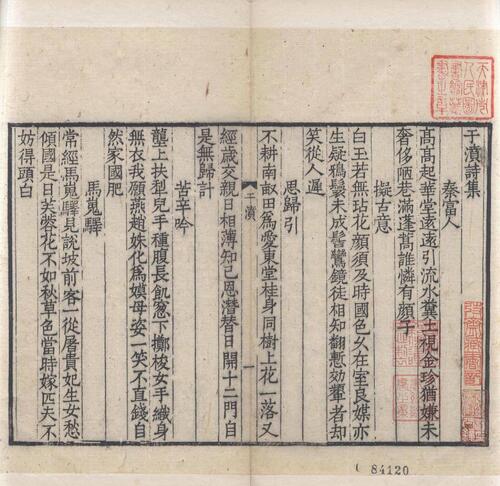 于濆詩集
秦富人
高高起華堂遠遠引流水糞土視金珍猶嫌未
奢侈陋巷滿蓬蒿誰憐有顔子
擬古意
白玉若無玷花顔須及時國色久在室良媒亦
生疑鴉鬟未成髻鸞鏡徒相知翻慙効顰者却
笑從人遲
思歸引
不耕南畝田爲愛東堂桂身同樹上花一落又
經歲交親日相薄知己恩潛替日開十二門自
是無歸計
苦辛吟
壟上扶犁兒手種腹長飢窓下擲梭女手織身
無衣我願燕趙姝化爲嫫母姿一笑不直錢自
然家國肥
馬嵬驛
常經馬嵬驛見說坡前客一從屠貴妃生女愁
傾國是日芙蓉花不如秋草色當時嫁匹夫不
妨得頭白
于濆
一
天津市人民圖書館藏書之章
84120